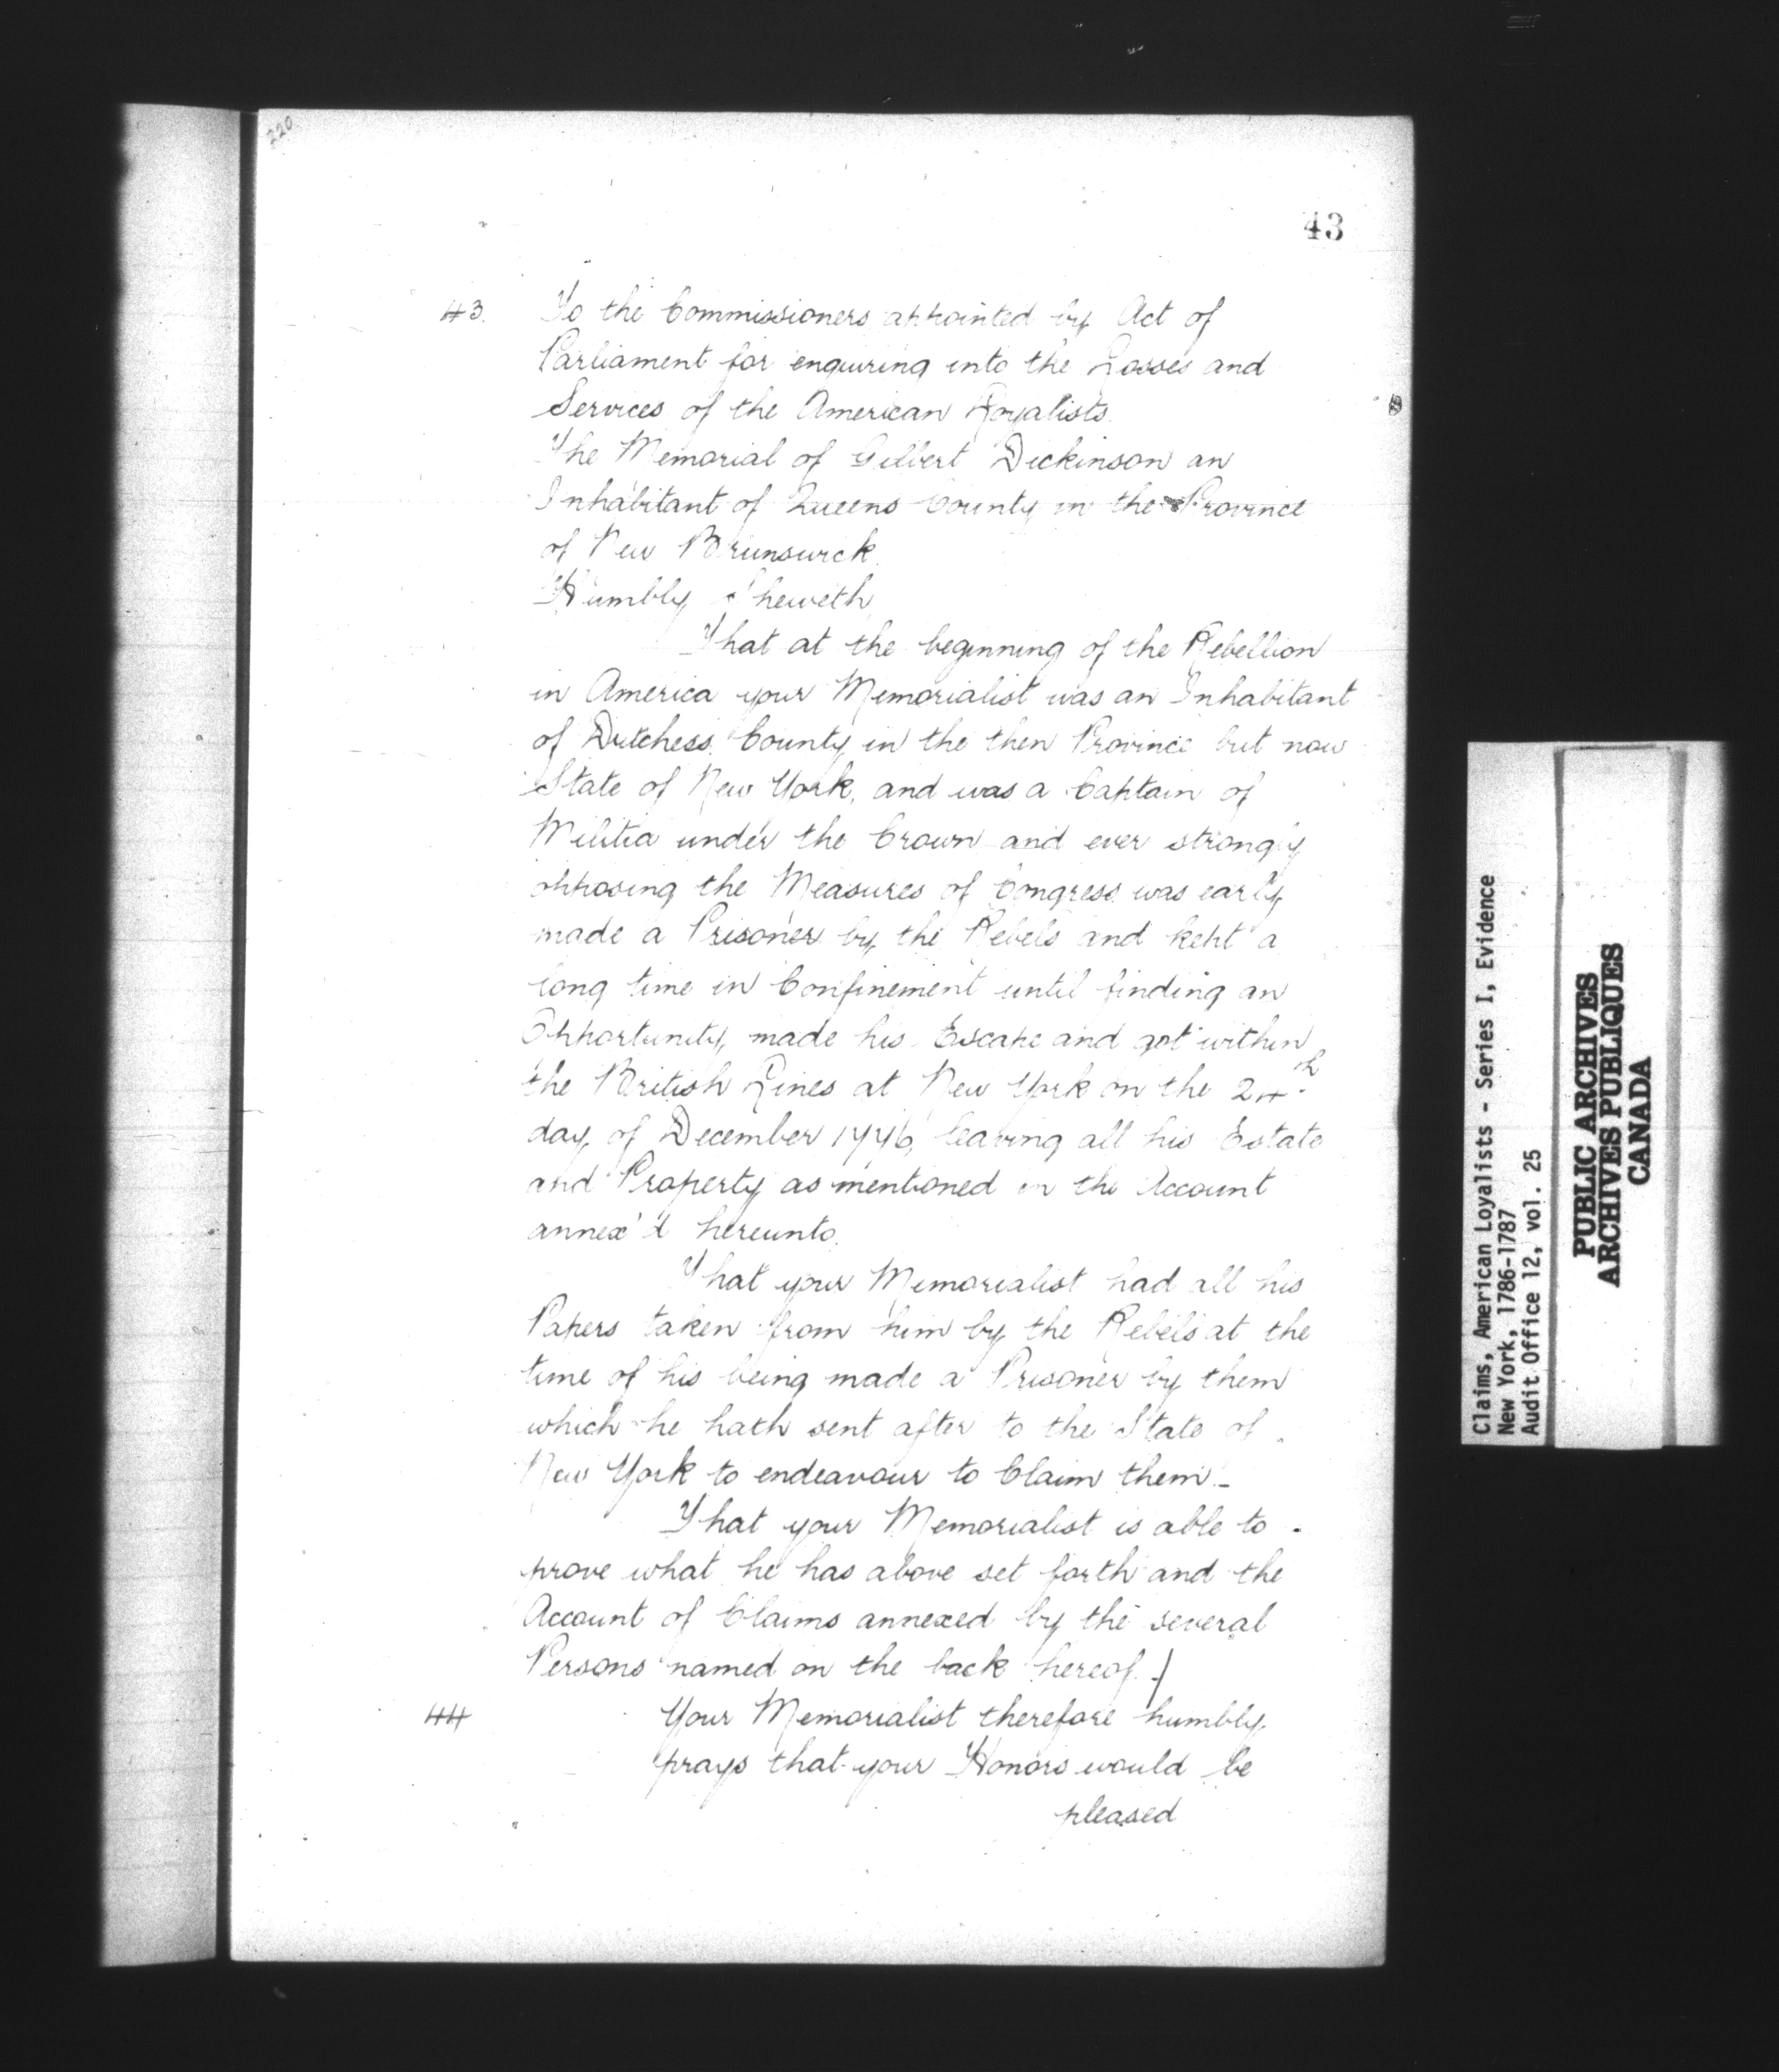 220
43
43. To the Commissioners appointed by Act of
Parliament for enquiring into the Losses and
Services of the American Loyalists.
The Memorial of Gilbert Dickinson an
Inhabitant of Queens County in the Province
of New Brunswick.
Humbly Sheweth
That at the beginning of the Rebellion
in America your Memorialist was an Inhabitant
of Dutchess County in the then Province but now
State of New York, and was a Captain of
Militia under the Crown and ever strongly
opposing the Measures of Congress was early
made a Prisoner by the Rebels and kept a
long time in Confinement until finding an
Opportunity made his Escape and got within
the British Lines at New York on the 24th
day of December 1776, leaving all his Estate
and Property as mentioned in the Account
annex'd hereunto.
That your Memorialist had all his
Papers taken from him by the Rebels at the
time of his being made a Prisoner by them
which he hath sent after to the State of
New York to endeavour to Claim them.—
That your Memorialist is able to
prove what he has above set forth and the
Account of Claims annexed by the several
Persons named on the back hereof. /
44 Your Memorialist therefore humbly
prays that your Honors would be
pleased
Claims, American Loyalists - Series I, Evidence
New York, 1786-1787
Audit Office 12, vol. 25
PUBLIC ARCHIVES
ARCHIVES PUBLIQUES
CANADA